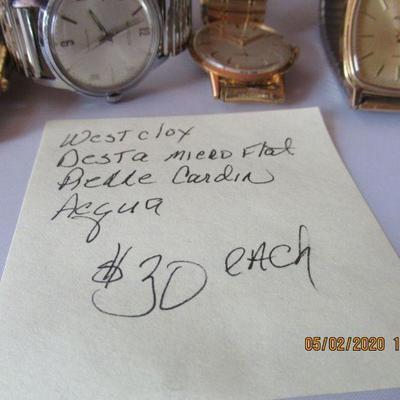 Westclox
Desta micro Flat
Pierre Cardin
Acqua
$30 each
05/02/2020 1